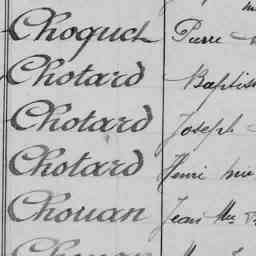 Choquet Pierre
Chotard Baptis
Chotard Joseph
Chotard Henri
Chouan Jean